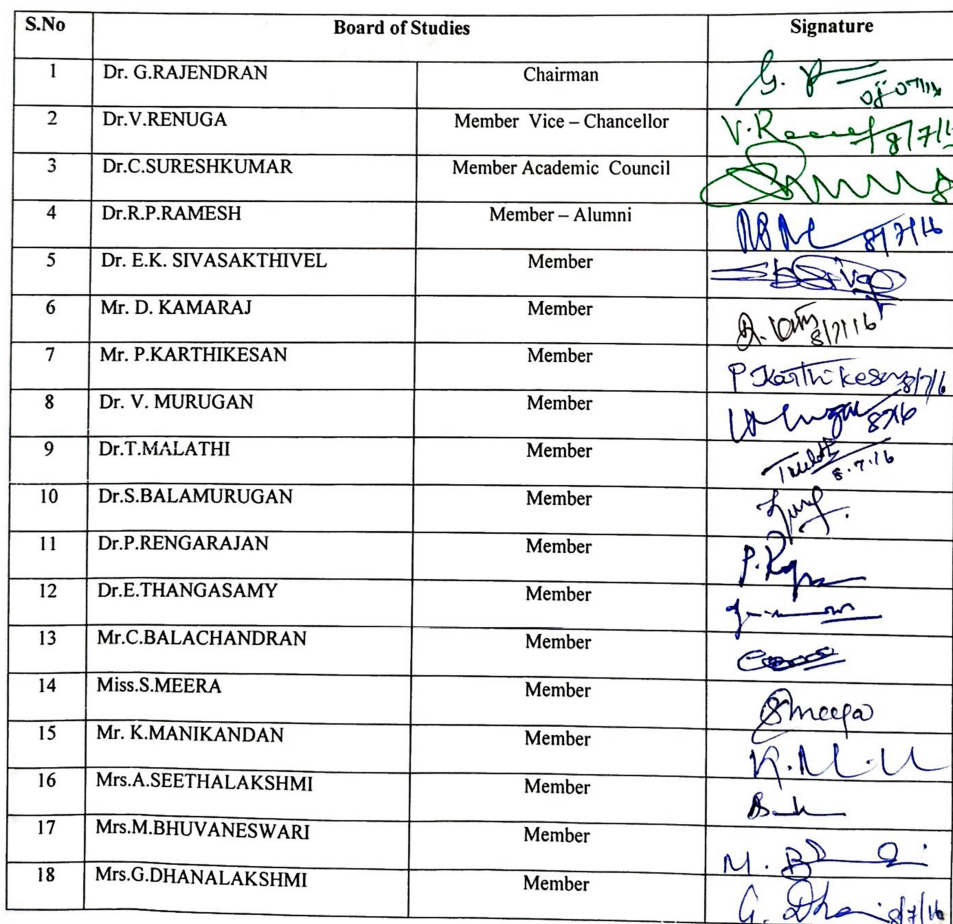 S.No Board of Studies Signature
1 Dr. G.RAJENDRAN Chairman G.
2 Dr.V.RENUGA Member Vice – Chancellor V. 8/7/16
3 Dr.C.SURESHKUMAR Member Academic Council
4 Dr.R.P.RAMESH Member – Alumni 8/7/16
5 Dr. E.K. SIVASAKTHIVEL Member
6 Mr. D. KAMARAJ Member 8/7/16
7 Mr. P.KARTHIKESAN Member P Karthikesan 8/7/16
8 Dr. V. MURUGAN Member
9 Dr.T.MALATHI Member 8.7.16
10 Dr.S.BALAMURUGAN Member
11 Dr.P.RENGARAJAN Member P.
12 Dr.E.THANGASAMY Member
13 Mr.C.BALACHANDRAN Member
14 Miss.S.MEERA Member SMeera
15 Mr. K.MANIKANDAN Member K.
16 Mrs.A.SEETHALAKSHMI Member
17 Mrs.M.BHUVANESWARI Member M.
18 Mrs.G.DHANALAKSHMI Member G. 8/7/16